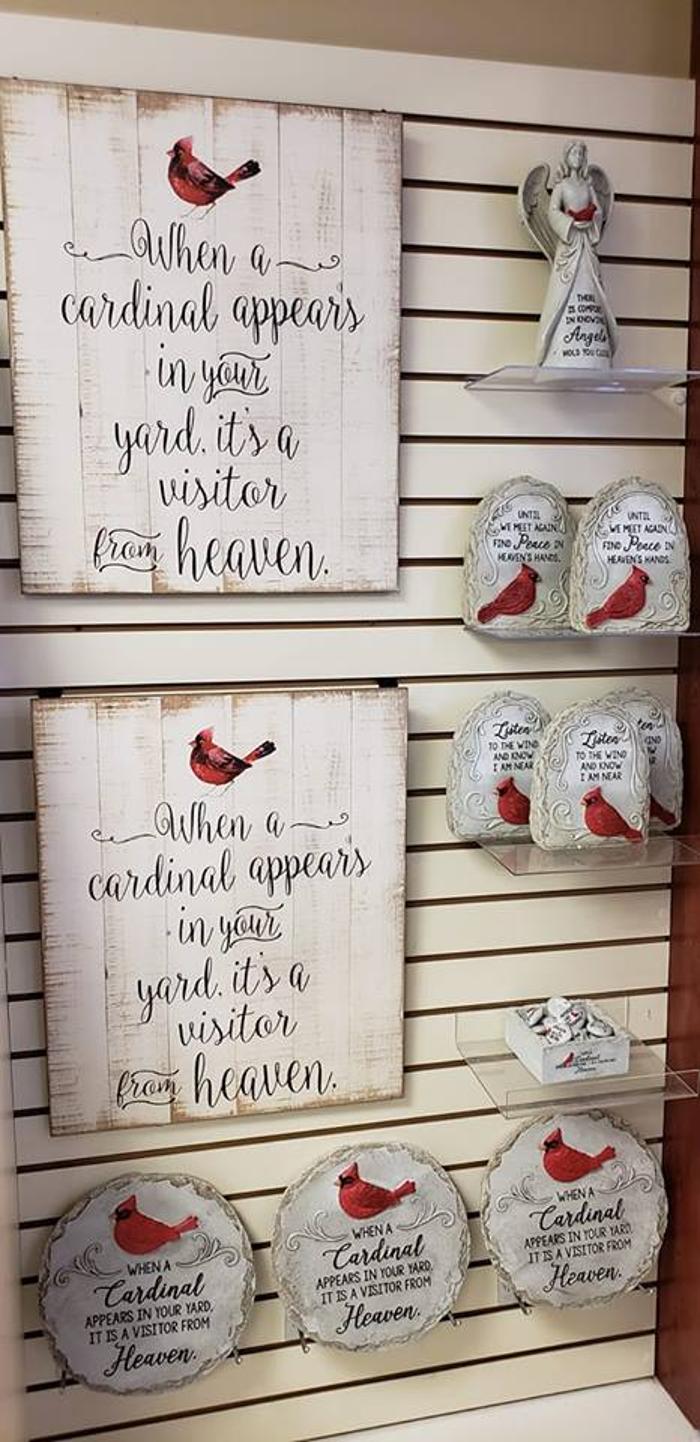 When a
cardinal appears
in your
yard, it's a
visitor
from heaven.
THERE
IS COMFORT
IN KNOWING
Angels
HOLD YOU CLOSE
UNTIL
WE MEET AGAIN
FIND Peace IN
HEAVEN'S HANDS.
UNTIL
WE MEET AGAIN
FIND Peace IN
HEAVEN'S HANDS.
When a
cardinal appears
in your
yard, it's a
visitor
from heaven.
Listen
TO THE WIND
AND KNOW
I AM NEAR
Listen
TO THE WIND
AND KNOW
I AM NEAR
ten
WIND
W
R
Cardinal
Heaven
WHEN A
Cardinal
APPEARS IN YOUR YARD,
IT IS A VISITOR FROM
Heaven.
WHEN A
Cardinal
APPEARS IN YOUR YARD,
IT IS A VISITOR FROM
Heaven.
WHEN A
Cardinal
APPEARS IN YOUR YARD,
IT IS A VISITOR FROM
Heaven.